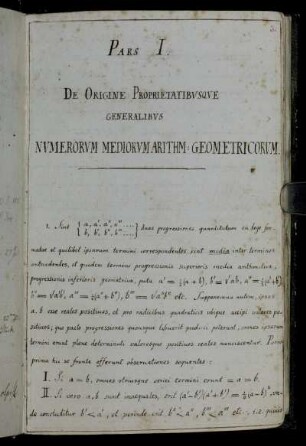 PARS I.
DE ORIGINE PROPRIETATIBVSQVE
GENERALIBVS
NVMERORVM MEDIORVM ARITHM: GEOMETRICORUM.
1. Sint { a, a', a'', a''' ....} duae progressiones quantitatum ea lege for-
{ b, b', b'', b''' ....}
matae ut quilibet ipsarum termini correspondentes sint media inter terminos
antecedentes, et quidem terminus progressionis superioris medius arithmeticus,
progressionis inferioris geometricus, puta a' = ½(a+b), b' = √ab, a'' = ½(a'+b'),
b'' = √a'b', a''' = ½(a''+b''), b''' = √a''b'' etc. Supponemus autem, ipsos
a, b esse reales positivos, et pro radicibus quadraticis ubique accipi valores po-
sitivos; quo pacto progressiones quousque libuerit produci poterunt, omnes ipsarum
termini erunt plene determinati valoresque positivos reales nanciscentur. Porro
prima hic se fronte offerunt observationes sequentes:
I. Si a = b, omnes utriusque seriei termini erunt = a = b.
II. Si vero a, b sunt inaequales, erit (a'-b')(a'+b') = ¼(a-b)², unde
concluditur b' < a', et perinde erit b'' < a'', b''' < a''' etc., i.e. quivis